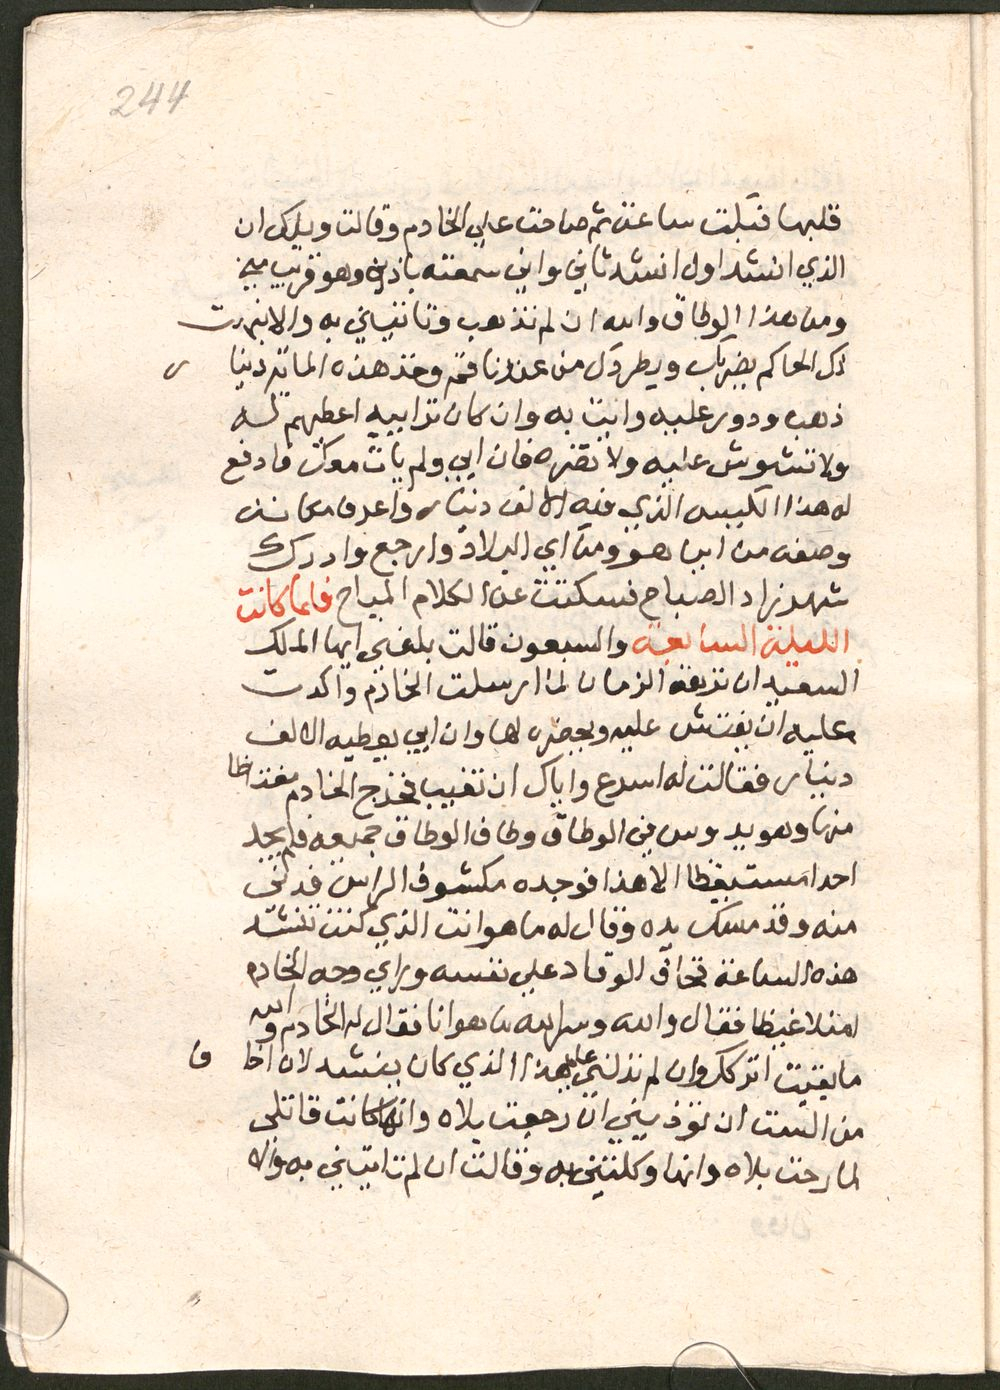 244
قلبها فبكت ساعة ثم صاحت علي الخادم وقالت ويلك ان
الذي انشد اول انشد ثاني واني سمعته باذني وهو قريب مني
ومن هذا الوطاق والله ان لم تذهب وتاتيني به والا
الحاكم يضربك ويطردك من عندنا وخذ هذه الماية دينا ر
ذهب ودور عليه وايت به وان كان ترابيه اعطيهم له
ولا تشوش عليه ولا تضره فان ابي ولم يات معك فادفع
له هذا الكيس الذي فيه الالف دينار واعرف مكانه
وصفه من اين هو ومن اي البلاد وارجع وادرك
شهرزاد الصباح فسكتت عن الكلام المباح فلما كانت
الليلة السابعة والسبعون قالت بلغني ايها الملك
السعيد ان نزهة الزمان لما ارسلت الخادم واكدت
عليه ان يفتش عليه ويحضره لها وان ابي يعطيه الالف
دينار فقالت له اسرع واياك ان تغيب فخرج الخادم مغتاظا
منها وهو يدوس في الوطاق وطاف الوطاق جميعه فلم يجد
احدا مستيقظا الا هذا فوجده مكشوف الراس فدني
منه وقد مسك يده وقال له ما هو انت الذي كنت تنشد
هذه الساعة فخاف الوقاد علي نفسه وراي وجه الخادم
امتلا غيظا فقال والله وسراية ما هو انا فقال له الخادم والله
ما بقيت اتركك وان لم تدلني علي هذا الذي كان ينشد لان اخا ف
من الست ان توذيني ان رجعت بلاه وانها كانت قاتلي
لما رحت بلاه وانها وكلتني به وقالت ان لم تاتيني به والا